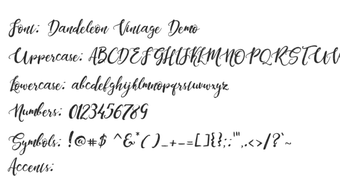 Font: Dandeleon Vintage Demo
Uppercase: ABCDEFGHIJKLMNOPQRSTUV
Lowercase: abcdefghijklmnopqrstuvwxyz
Numbers: 0123456789
Symbols: !@#$ ^&*()_+-=[]{};:'",.<>/?`~
Accents: